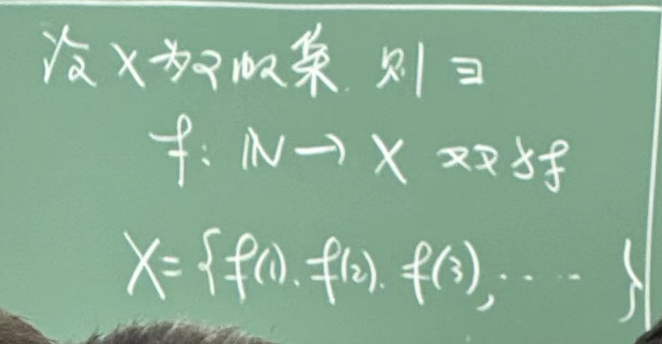 设 X 为可数集. 则 ∃
f: ℕ → X 双射
X = {f(1). f(2). f(3), ······ }